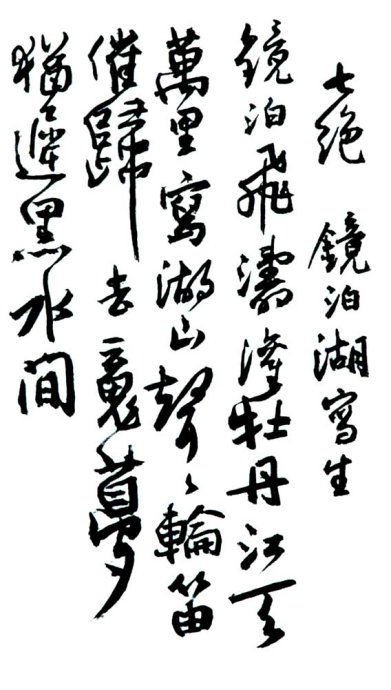 七絶 鏡泊湖寫生
鏡泊飛濤牡丹江天
萬里寫湖山聲々輪笛
催歸去魂夢
猶黑水間